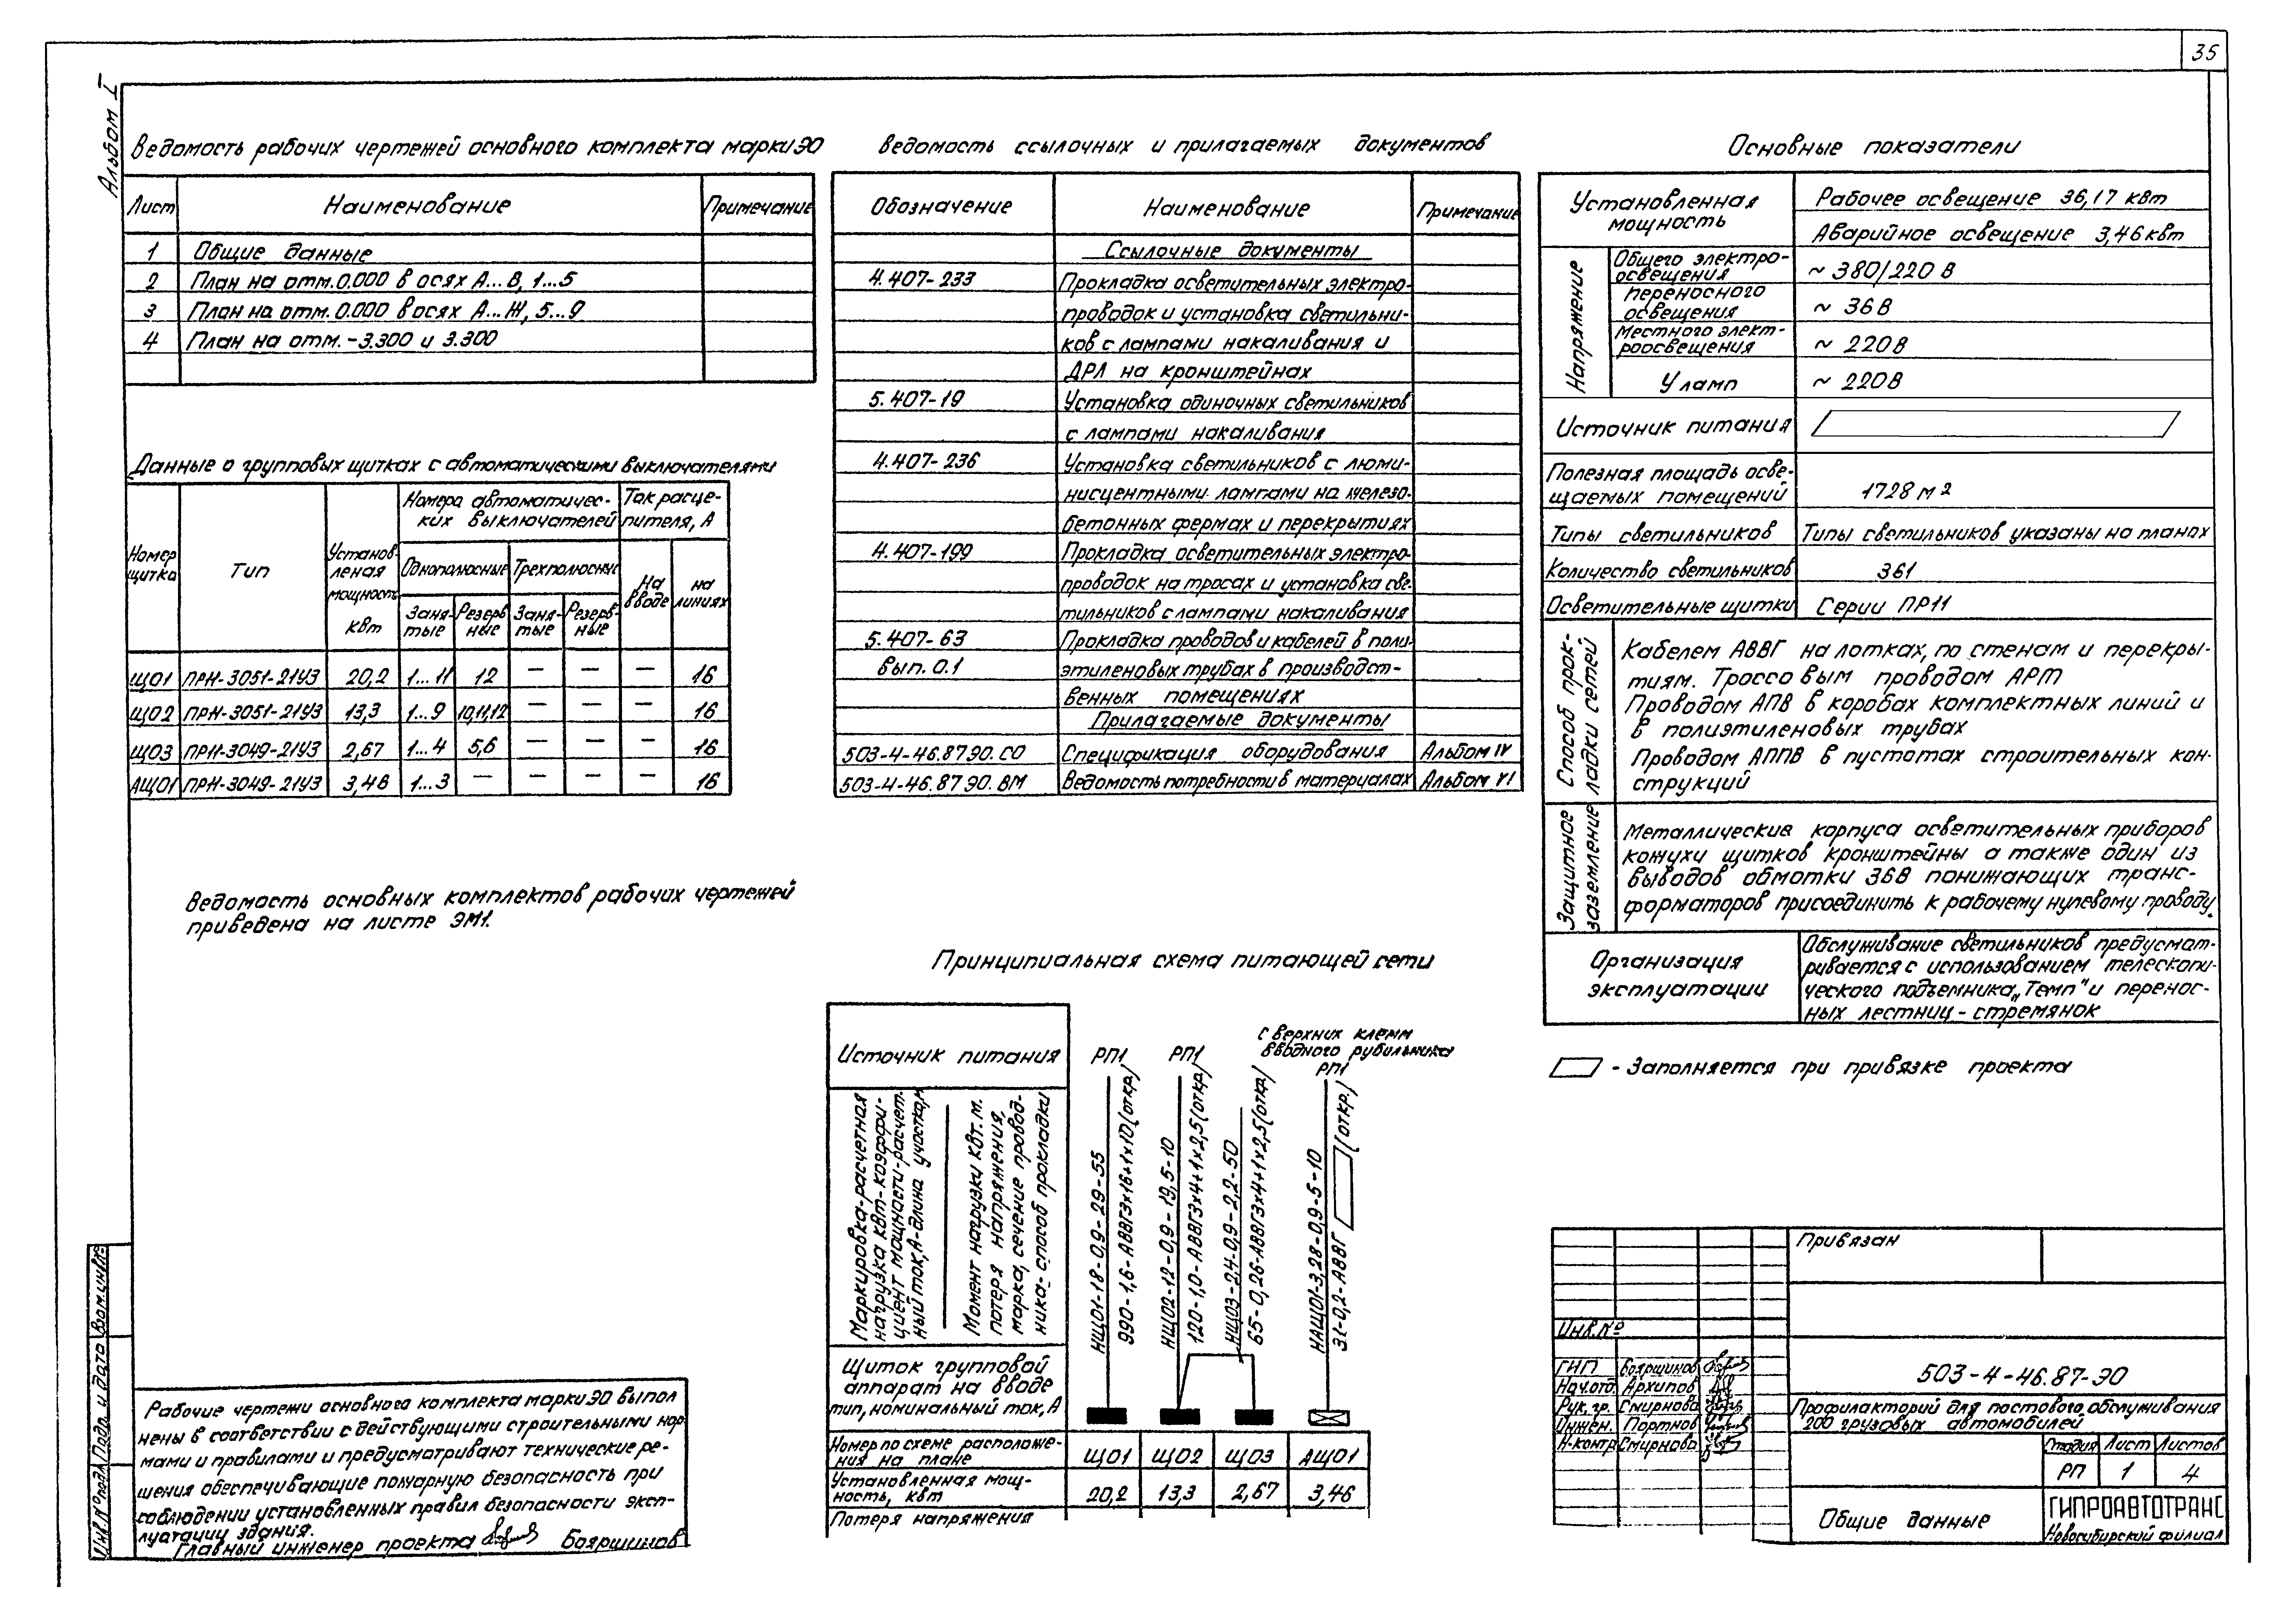 35
Альбом I
Ведомость рабочих чертежей основного комплекта марки ЭО
Лист Наименование Примечание
1 Общие данные
2 План на отм. 0.000 в осях А...В, 1...5
3 План на отм. 0.000 в осях А...Ж, 5...9
4 План на отм. -3.300 и 3.300
Данные о групповых щитках с автоматическими выключателями
Номер щитка
Тип
Установленая мощность кВт
Номера автоматичес-
ких выключателей
Ток расце-
пителя, А
Однополюсные Трехполюсные
На вводе
на линиях
Заня-
тые
Резерв
ные
Заня-
тые
Резерв-
ные
ЩО1 ПРН-3051-21У3 20,2 1...11 12 — — — 16
ЩО2 ПРН-3051-21У3 13,3 1...9 10,11,12 — — — 16
ЩО3 ПРН-3049-21У3 2,67 1...4 5,6 — — — 16
АЩО1 ПРН-3049-21У3 3,46 1...3 — — — — 16
Ведомость основных комплектов рабочих чертежей
приведена на листе ЭМ1.
Рабочие чертежи основного комплекта марки ЭО выпол
нены в соответствии с действующими строительными нор
мами и правилами и предусматривают технические ре-
шения обеспечивающие пожарную безопасность при
соблюдении установленных правил безопасности эксп-
луатации здания.
Главный инженер проекта Бояршинов
Ведомость ссылочных и прилагаемых документов
Обозначение Наименование Примечание
Ссылочные документы
4.407-233 Прокладка осветительных электро-
проводок и установка светильни-
ков с лампами накаливания и
ДРЛ на кронштейнах
5.407-19 Установка одиночных светильников
с лампами накаливания
4.407-236 Установка светильников с люми-
нисцентными лампами на железо-
бетонных фермах и перекрытиях
4.407-199 Прокладка осветительных электро-
проводок на тросах и установка све-
тильников с лампами накаливания
5.407-63 Прокладка проводов и кабелей в поли-
вып. 0.1 этиленовых трубах в производст-
венных помещениях
Прилагаемые документы
503-4-46.87 ЭО. СО Спецификация оборудования Альбом IV
503-4-46.87 ЭО. ВМ Ведомость потребности в материалах Альбом VI
Принципиальная схема питающей сети
Источник питания
РП1
РП1
с верхних клемм
вводного рубильника
РП1
Маркировка-расчетная
нагрузка кВт-коэффи-
циент мощности-расчет-
ный ток, А-длина участка, м
Момент нагрузки кВт. м.
потеря напряжения,
марка, сечение провод-
ника-способ прокладки
НЩО1-18-0,9-29-55
990-1,6-АВВГ3х16+1х10(откр)
НЩО2-12-0,9-19,5-10
120-1,0-АВВГ3х4+1х2,5(откр)
НЩО3-2,4-0,9-2,2-50
65-0,26-АВВГ3х4+1х2,5(откр)
НАЩО1-3,28-0,9-5-10
31-0,2-АВВГ (откр.)
Щиток групповой
аппарат на вводе
тип, номинальный ток, А
Номер по схеме расположе-
ния на плане
ЩО1 ЩО2 ЩО3 АЩО1
Установленная мощ-
ность, квт
20,2 13,3 2,67 3,46
Потеря напряжения
Основные показатели
Установленная
мощность
Рабочее освещение 36,17 квт
Аварийное освещение 3,46 квт
Напряжение
Общего электро-
освещения
~ 380/220 В
переносного
освещения
~ 36 В
местного элект-
роосвещения
~ 220 В
У ламп ~ 220 В
Источник питания
Полезная площадь осве-
щаемых помещений
1728 м2
Типы светильников Типы светильников указаны на планах
Количество светильников 361
Осветительные щитки Серии ПР11
Способ прок-
ладки сетей
Кабелем АВВГ на лотках, по стенам и перекры-
тиям. Троссовым проводом АРТ
Проводом АПВ в коробах комплектных линий и
в полиэтиленовых трубах
Проводом АППВ в пустотах строительных кон-
струкций
Защитное
заземление
Металлические корпуса осветительных приборов
кожухи щитков кронштейны а также один из
выводов обмотки 36В понижающих транс-
форматоров присоединить к рабочему нулевому проводу.
Организация
эксплуатации
Обслуживание светильников предусмат-
ривается с использованием телескопи-
ческого подъемника „Темп" и перенос-
ных лестниц-стремянок
- Заполняется при привязке проекта
Привязан
Инв. №
ГИП Бояршинов
Нач. отд. Архипов
Рук. гр. Смирнова
Инжен. Портнов
Н-контр Смирнова
503-4-46.87-ЭО
Профилакторий для постового обслуживания
200 грузовых автомобилей
Стадия Лист Листов
РП 1 4
Общие данные
ГИПРОАВТОТРАНС
Новосибирский филиал
Взам. инв. №
Подп. и дата
Инв. № подл.